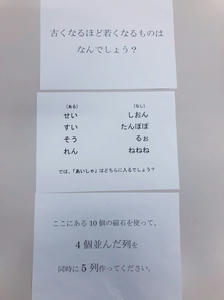 古くなるほど若くなるものは
なんでしょう？
（ある）
（なし）
せい
しおん
すい
たんぽぽ
そう
るぉ
れん
ねねね
では、「あいしゃ」はどちらに入るでしょう？
ここにある10個の磁石を使って、
4個並んだ列を
同時に5列作ってください。